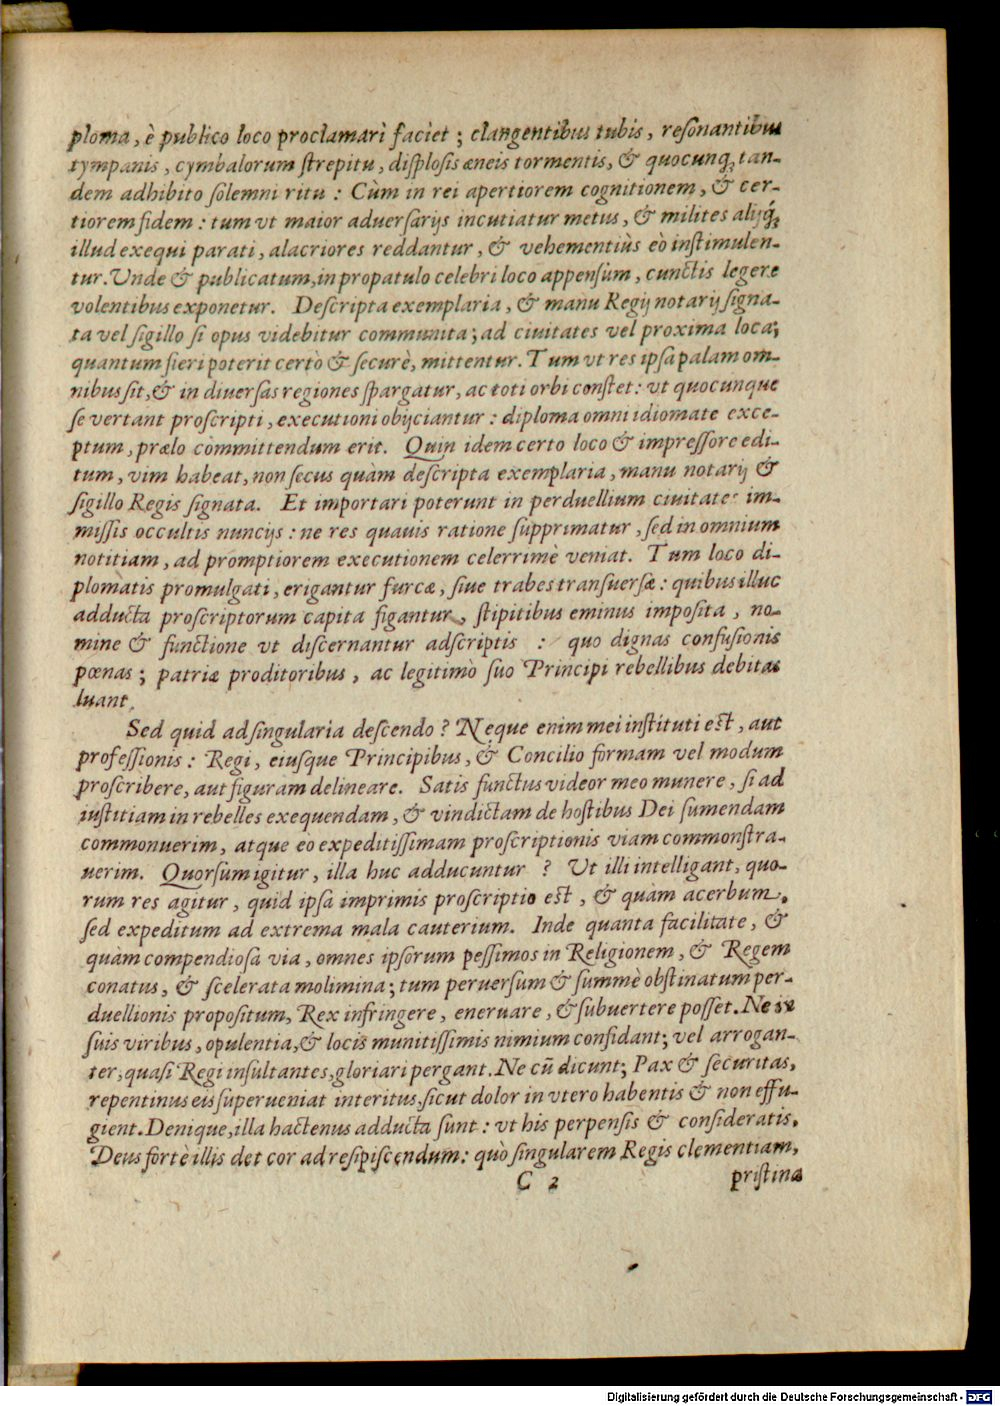 ploma, è publico loco proclamari faciet ; clangentibus tubis, resonantibus
tympanis, cymbalorum strepitu, displosis æneis tormentis, & quocunq; tan-
dem adhibito solemni ritu : Cùm in rei apertiorem cognitionem, & cer-
tiorem fidem : tum vt maior aduersarijs incutiatur metus, & milites alijq́;
illud exequi parati, alacriores reddantur, & vehementiùs eò instimulen-
tur. Unde & publicatum, in propatulo celebri loco appensùm, cunctis legere
volentibus exponetur. Descripta exemplaria, & manu Regij notarij signa-
ta vel sigillo si opus videbitur communita; ad ciuitates vel proxima loca,
quantum fieri poterit certò & securè, mittentur. Tum vt res ipsa palam om-
nibus sit, & in diuersas regiones spargatur, ac toti orbi constet: vt quocunque
se vertant proscripti, executioni obijciantur : diploma omni idiomate exce-
ptum, prælo committendum erit. Quin idem certo loco & impressore edi-
tum, vim habeat, non secus quàm descripta exemplaria, manu notarij &
sigillo Regis signata. Et importari poterunt in perduellium ciuitates im-
missis occultis nuncijs : ne res quauis ratione supprimatur, sed in omnium
notitiam, ad promptiorem executionem celerrimè veniat. Tum loco di-
plomatis promulgati, erigantur furcæ, siue trabes transuersæ : quibus illuc
adducta proscriptorum capita figantur, stipitibus eminus imposita, no-
mine & functione vt discernantur adscriptis : quo dignas confusionis
pœnas ; patriæ proditoribus, ac legitimò suo Principi rebellibus debitas
luant.
Sed quid ad singularia descendo ? Neque enim mei instituti est, aut
professionis : Regi, eiusque Principibus, & Concilio formam vel modum
proscribere, aut figuram delineare. Satis functus videor meo munere, si ad
iustitiam in rebelles exequendam, & vindictam de hostibus Dei sumendam
commonuerim, atque eò expeditissimam proscriptionis viam commonstra-
uerim. Quorsum igitur, illa huc adducuntur ? Ut illi intelligant, quo-
rum res agitur, quid ipsa imprimis proscriptio est, & quàm acerbum,
sed expeditum ad extrema mala cauterium. Inde quanta facilitate, &
quàm compendiosa via, omnes ipsorum pessimos in Religionem, & Regem
conatus, & scelerata molimina; tum peruersum & summè obstinatum per-
duellionis propositum, Rex infringere, eneruare, & subuertere posset. Ne in
suis viribus, opulentia, & locis munitissimis nimium confidant; vel arrogan-
ter, quasi Regi insultantes, gloriari pergant. Ne cũ dicunt; Pax & securitas,
repentinus eis superueniat interitus, sicut dolor in vtero habentis & non effu-
gient. Denique, illa hactenus adducta sunt : vt his perpensis & consideratis,
Deus fortè illis det cor ad resipiscendum: quò singularem Regis clementiam,
C 2 pristina
Digitalisierung gefördert durch die Deutsche Forschungsgemeinschaft - DFG